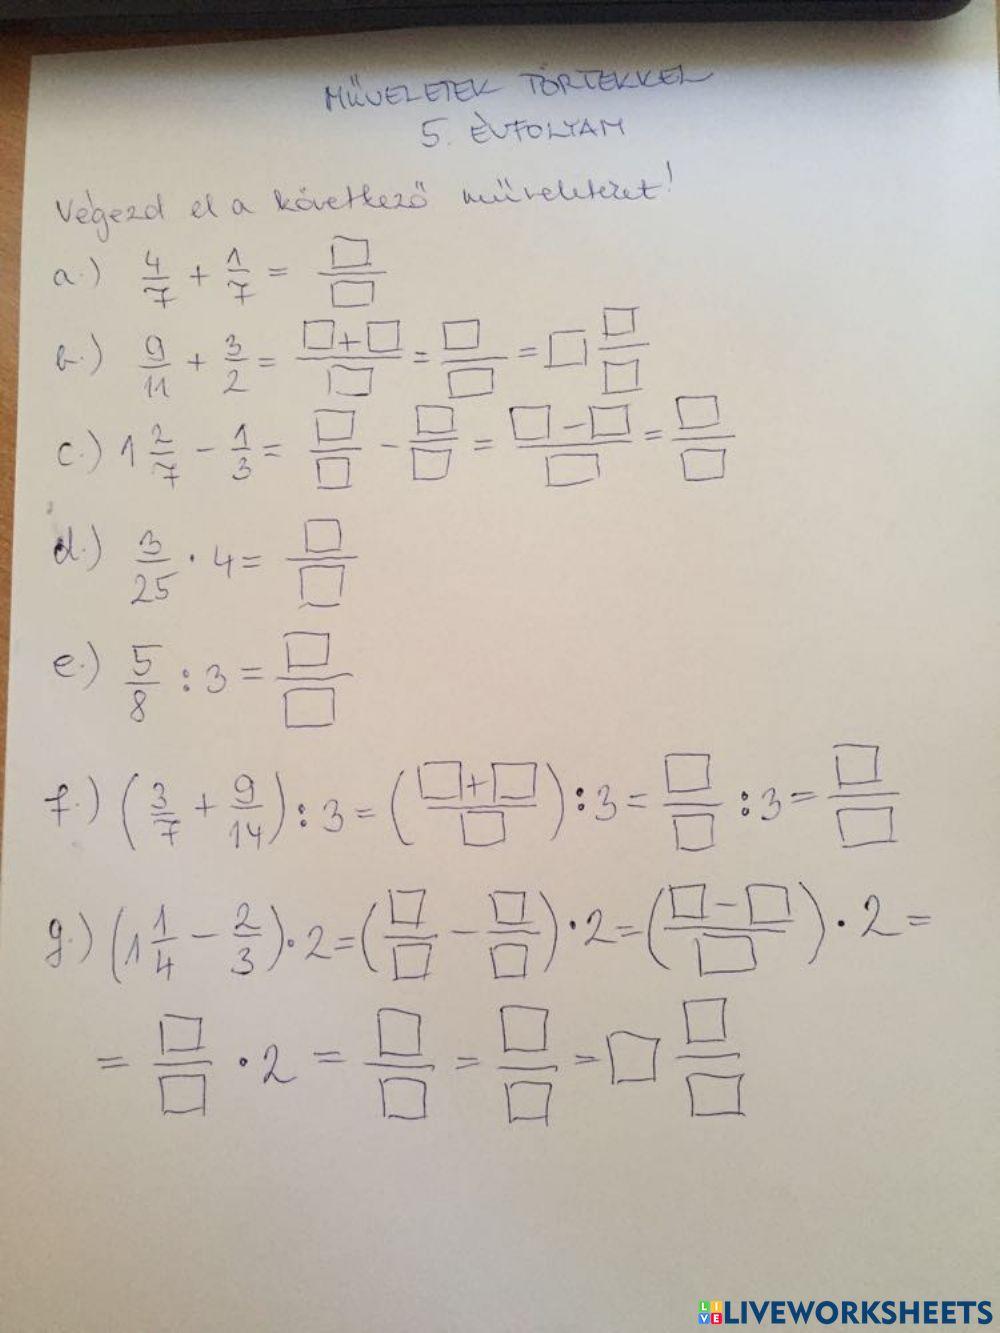 MŰVELETEK TÖRTEKKEL
5. ÉVFOLYAM
Végezd el a következő műveleteket!
a.) 4/7 + 1/7 = □/□
b.) 9/11 + 3/2 = (□+□)/□ = □/□ = □ □/□
c.) 1 2/7 - 1/3 = □/□ - □/□ = (□-□)/□ = □/□
d.) 3/25 · 4 = □/□
e.) 5/8 : 3 = □/□
f.) (3/7 + 9/14) : 3 = ((□+□)/□) : 3 = □/□ : 3 = □/□
g.) (1 1/4 - 2/3) · 2 = (□/□ - □/□) · 2 = ((□-□)/□) · 2 =
= □/□ · 2 = □/□ = □/□ = □ □/□
LIVEWORKSHEETS